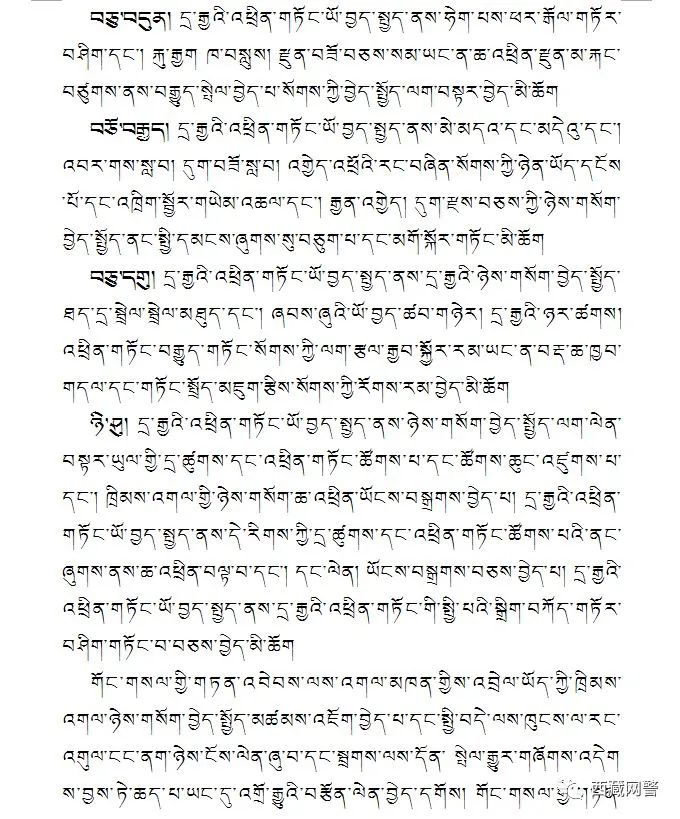 བཅུ་བདུན། དྲ་རྒྱའི་འཕྲིན་གཏོང་ཡོ་བྱད་སྤྱད་ནས་ཧེག་པས་ཕར་རྒོལ་གཏོར་
བཤིག་དང་། རྐུ་རྒྱག ཁ་བསླུས། རྫུན་བཟོ་བཅས་སམ་ཡང་ན་ཆ་འཕྲིན་རྫུན་མ་རྐང་
བཙུགས་ནས་བརྒྱུད་སྤེལ་བྱེད་པ་སོགས་ཀྱི་བྱེད་སྤྱོད་ལག་བསྟར་བྱེད་མི་ཆོག
བཅོ་བརྒྱད། དྲ་རྒྱའི་འཕྲིན་གཏོང་ཡོ་བྱད་སྤྱད་ནས་མེ་མདའ་དང་མདེའུ་དང་།
འབར་གས་སླ་བ། དུག་བཟོ་སླ་བ། འགྱེད་འཕྲོའི་རང་བཞིན་སོགས་ཀྱི་ཉེན་ཡོད་དངོས་
པོ་དང་འཁྲིག་སྦྱོར་གཡེམ་འཆལ་དང་། རྒྱན་འགྱེད། དུག་རྫས་བཅས་ཀྱི་ཉེས་གསོག་
བྱེད་སྤྱོད་ནང་སྤྱི་དམངས་ཞུགས་སུ་བཅུག་པ་དང་མགོ་སྐོར་གཏོང་མི་ཆོག
བཅུ་དགུ། དྲ་རྒྱའི་འཕྲིན་གཏོང་ཡོ་བྱད་སྤྱད་ནས་དྲ་རྒྱའི་ཉེས་གསོག་བྱེད་སྤྱོད་
ཐད་དྲ་སྦྲེལ་སྦྲེལ་མཐུད་དང་། ཞབས་ཞུའི་ཡོ་བྱད་ཚབ་གཉེར། དྲ་རྒྱའི་ཉར་ཚགས།
འཕྲིན་གཏོང་བརྒྱུད་གཏོང་སོགས་ཀྱི་ལག་རྩལ་རྒྱབ་སྐྱོར་རམ་ཡང་ན་བརྡ་ཆ་ཁྱབ་
གདལ་དང་གཏོང་སྤྲོད་མཇུག་རྩིས་སོགས་ཀྱི་རོགས་རམ་བྱེད་མི་ཆོག
ཉི་ཤུ། དྲ་རྒྱའི་འཕྲིན་གཏོང་ཡོ་བྱད་སྤྱད་ནས་ཉེས་གསོག་བྱེད་སྤྱོད་ལག་ལེན་
བསྟར་ཡུལ་གྱི་དྲ་ཚུགས་དང་འཕྲིན་གཏོང་ཚོགས་པ་དང་ཚོགས་ཆུང་འཛུགས་པ་
དང་། ཁྲིམས་འགལ་གྱི་ཉེས་གསོག་ཆ་འཕྲིན་ཡོངས་བསྒྲགས་བྱེད་པ། དྲ་རྒྱའི་འཕྲིན་
གཏོང་ཡོ་བྱད་སྤྱད་ནས་དེ་རིགས་ཀྱི་དྲ་ཚུགས་དང་འཕྲིན་གཏོང་ཚོགས་པའི་ནང་
ཞུགས་ནས་ཆ་འཕྲིན་བལྟ་བ་དང་། དང་ལེན། ཡོངས་བསྒྲགས་བཅས་བྱེད་པ། དྲ་རྒྱའི་
འཕྲིན་གཏོང་ཡོ་བྱད་སྤྱད་ནས་དྲ་རྒྱའི་འཕྲིན་གཏོང་གི་སྤྱི་པའི་སྒྲིག་བཀོད་གཏོར་
བཤིག་གཏོང་བ་བཅས་བྱེད་མི་ཆོག
གོང་གསལ་གྱི་གཏན་འབེབས་ལས་འགལ་མཁན་གྱིས་འབྲེལ་ཡོད་ཀྱི་ཁྲིམས་
འགལ་ཉེས་གསོག་བྱེད་སྤྱོད་མཚམས་འཇོག་བྱེད་པ་དང་སྤྱི་བདེ་ལས་ཁུངས་ལ་རང་
འགུལ་ངང་ནག་ཉེས་ངོས་ལེན་ཞུ་བ་དང་སྦྲགས་ལས་དོན་ སྤེལ་རྒྱུར་གཞོགས་འདེག
ས་བྱས་ཏེ་ཆད་པ་ཡང་དུ་འགྲོ་རྒྱུའི་བརྩོན་ལེན་བྱེད་དགོས། གོང་གསལ་གྱི་
西藏网警